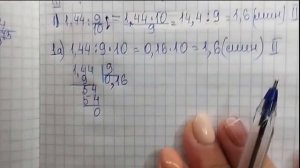 1) 1,44 : 9/10 = 1,44·10/9 = 14,4 : 9 = 1,6 (млн) II
1a) 1,44 : 9 · 10 = 0,16 · 10 = 1,6 (млн) II
1,44 | 9
9 | 0,16
54
54
0